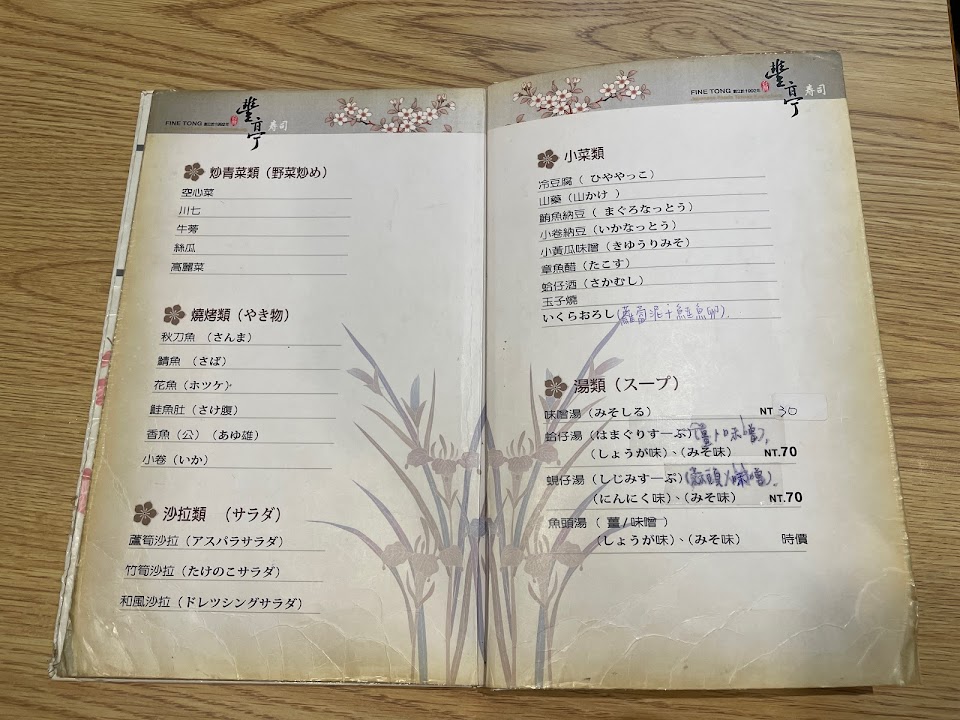 FINE TONG 創立於1992年
豐亭
壽司
炒青菜類（野菜炒め）
空心菜
川七
牛蒡
絲瓜
高麗菜
燒烤類（やき物）
秋刀魚（さんま）
鯖魚（さば）
花魚（ホツケ）
鮭魚肚（さけ腹）
香魚（公）（あゆ雄）
小卷（いか）
沙拉類 （サラダ）
蘆筍沙拉（アスパラサラダ）
竹筍沙拉（たけのこサラダ）
和風沙拉（ドレツシングサラダ）
FINE TONG 創立於1992年
豐亭
壽司
小菜類
冷豆腐（ ひややっこ）
山藥（山かけ ）
鮪魚納豆（ まぐろなっとう）
小卷納豆（いかなっとう）
小黃瓜味噌（きゆうりみそ）
章魚醋（たこす）
蛤仔酒（さかむし）
玉子燒
いくらおろし(蘿蔔泥+鮭魚卵).
湯類（スープ）
味噌湯（みそしる） NT 30
蛤仔湯（はまぐりすーぷ）(薑/味噌).
（しょうが味）、（みそ味） NT.70
蜆仔湯（しじみすーぷ）(蒜頭/味噌).
（にんにく味）、（みそ味） NT.70
魚頭湯（ 薑/味噌 ）
（しょうが味）、（みそ味） 時價